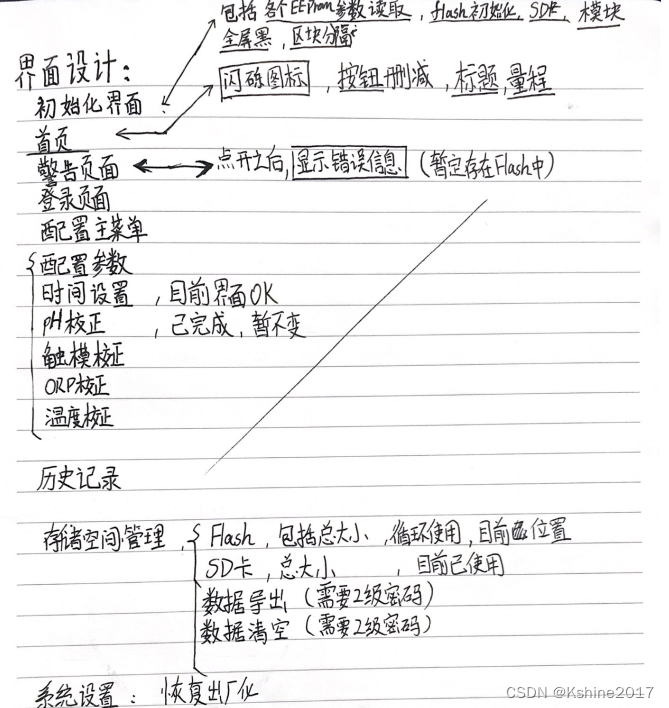 包括各个EEProm参数读取，flash初始化，SD卡，模块
全屏黑，区块分隔
界面设计：
初始化界面：
闪砾图标，按钮删减，标题，量程
首页
警告页面 点开之后，显示错误信息（暂定存在Flash中）
登录页面
配置主菜单
配置参数
时间设置，目前界面OK
pH校正，已完成，暂不变
触模校正
ORP校正
温度校正
历史记录
存储空间管理，Flash，包括总大小，循环使用，目前位置
SD卡，总大小，目前已使用
数据导出（需要2级密码）
数据清空（需要2级密码）
系统设置：恢复出厂化
CSDN @Kshine2017